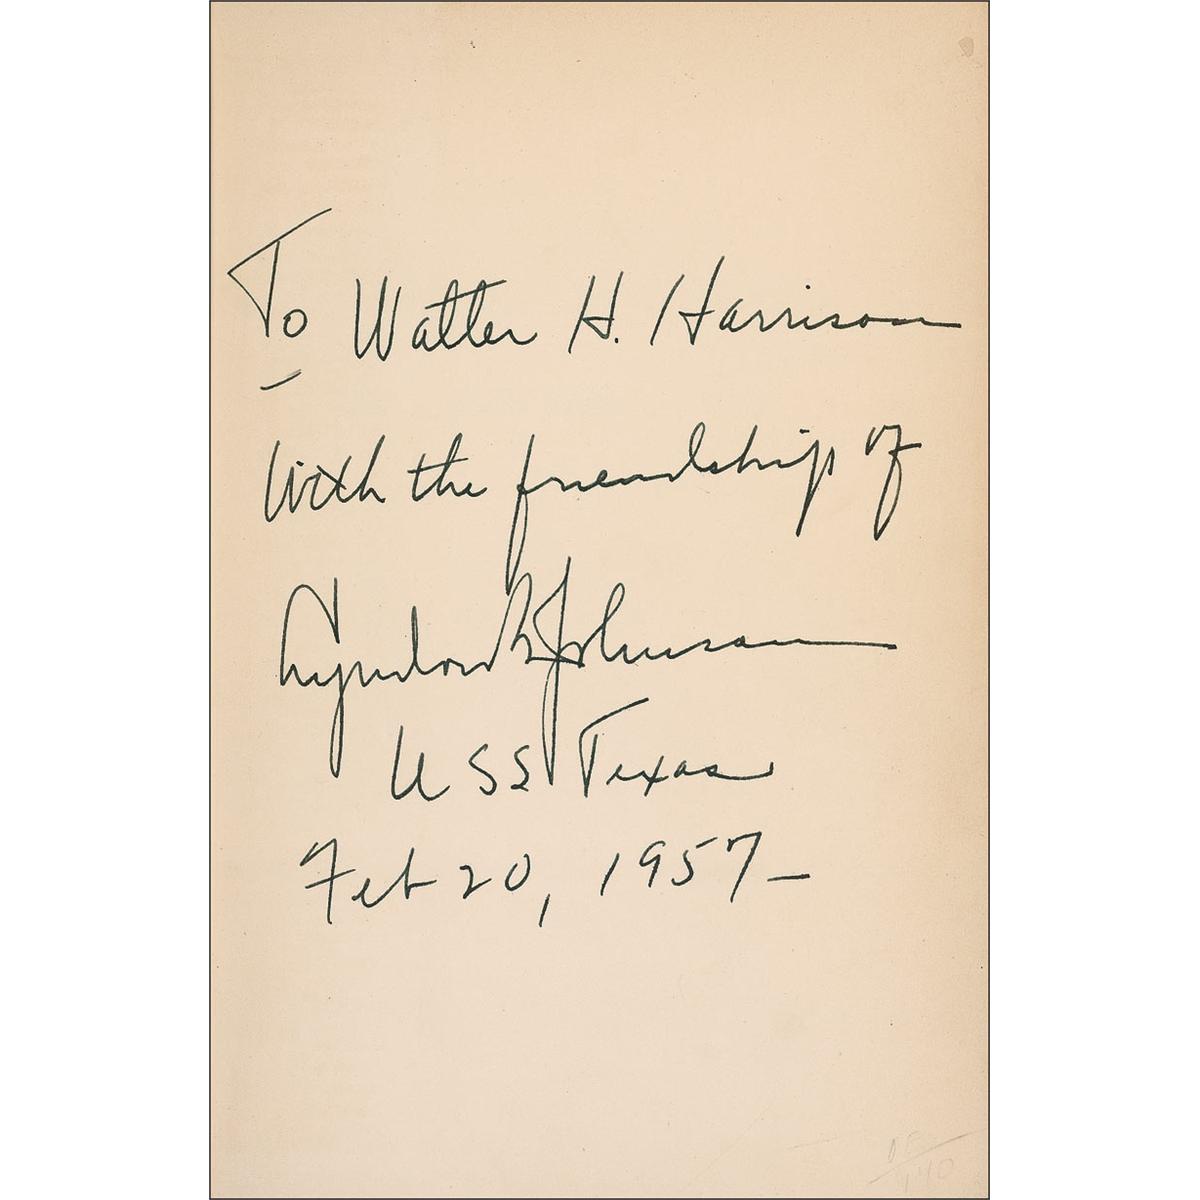 To Walter H. Harrison
With the friendship of
Lyndon B Johnson
USS Texas
Feb 20, 1957 –